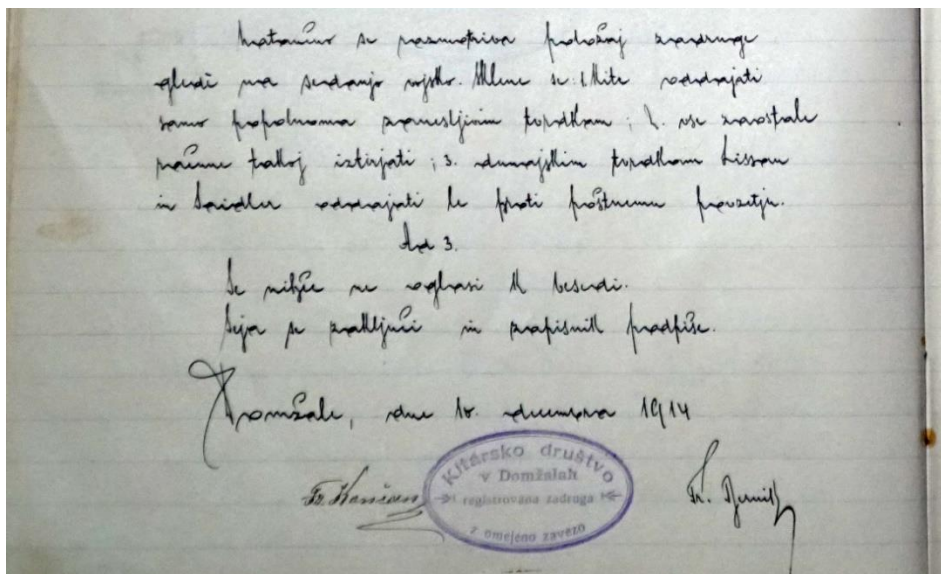 Natančno se razmotriva položaj zadruge
glede na sedanjo vojsko. Sklene se: 1. Kite oddajati
samo popolnoma zanesljivim tvrdkam; 2. vse zaostale
račune takoj iztirjati; 3. dunajskim tvrdkam Lissau
in Saidler oddajati le proti poštnemu povzetju.
Ad 3.
Se nihče ne oglasi k besedi.
Seja se zaključi in zapisnik podpiše.
Domžale, dne decembra 1914
Fr.
Kitarsko društvo
v Domžalah
registrovana zadruga
z omejeno zavezo
Fr.